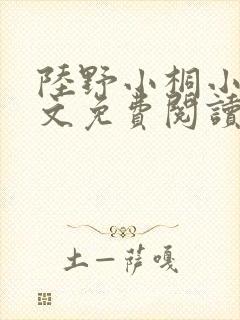 陸野小桐小
文免費閱讀
土一薩嘎